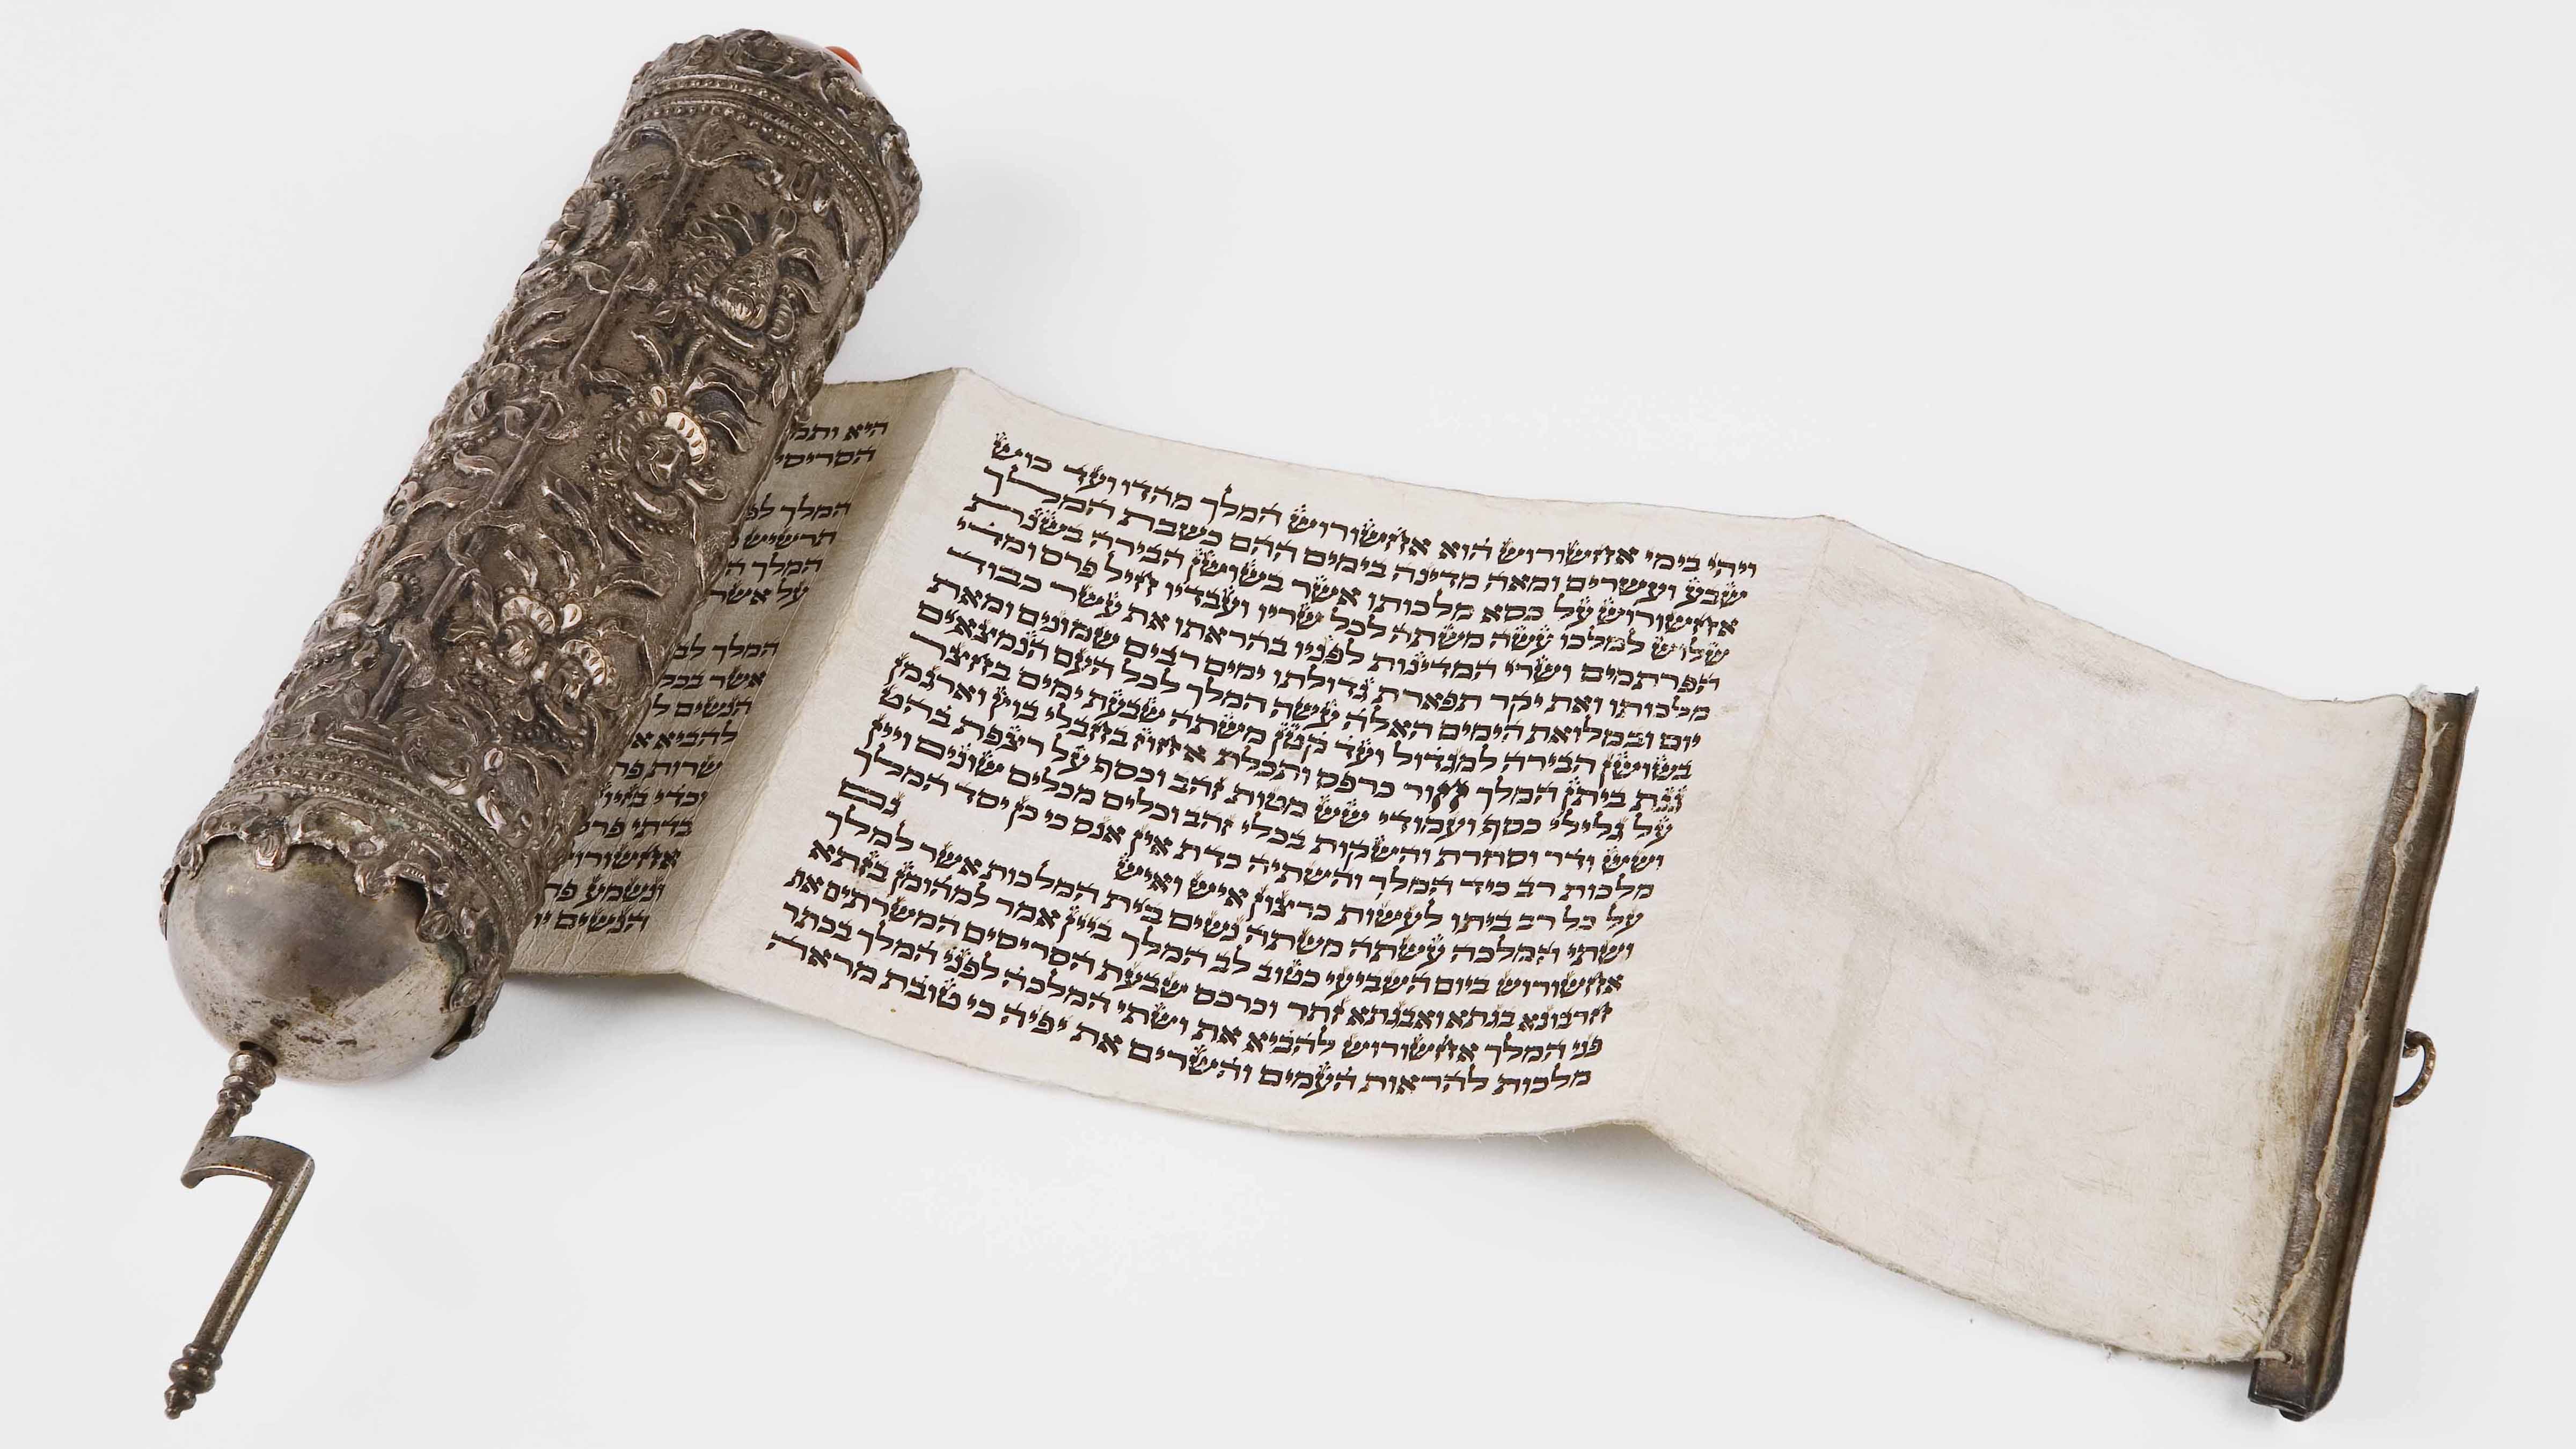 ויהי בימי אחשורוש הוא אחשורוש המלך מהדו ועד כוש
שבע ועשרים ומאה מדינה בימים ההם כשבת המלך
אחשורוש על כסא מלכותו אשר בשושן הבירה בשנת
שלוש למלכו עשה משתה לכל שריו ועבדיו חיל פרס ומדי
הפרתמים ושרי המדינות לפניו בהראתו את עשר כבוד
מלכותו ואת יקר תפארת גדולתו ימים רבים שמונים ומאת
יום ובמלואת הימים האלה עשה המלך לכל העם הנמצאים
בשושן הבירה למגדול ועד קטן משתה שבעת ימים בחצר
גנת ביתן המלך חור כרפס ותכלת אחוז בחבלי בוץ וארגמן
על גלילי כסף ועמודי שש מטות זהב וכסף על רצפת בהט
ושש ודר וסחרת והשקות בכלי זהב וכלים מכלים שונים ויין
מלכות רב כיד המלך והשתיה כדת אין אנס כי כן יסד המלך
על כל רב ביתו לעשות כרצון איש ואיש גם
ושתי המלכה עשתה משתה נשים בית המלכות אשר למלך
אחשורוש ביום השביעי כטוב לב המלך ביין אמר למהומן בזתא
חרבונא בגתא ואבגתא זתר וכרכס שבעת הסריסים המשרתים את
פני המלך אחשורוש להביא את ושתי המלכה לפני המלך בכתר
מלכות להראות העמים והשרים את יפיה כי טובת מראה
היא ותמ
הסריסי
המלך לפ
תרשיש
המלך ה
על אשר
המלך לב
אשר בכל
הנשים ל
להביא א
שרות פר
וכדי בזיו
בדתי פרס
אחשורו
ונשמע פת
הנשים י